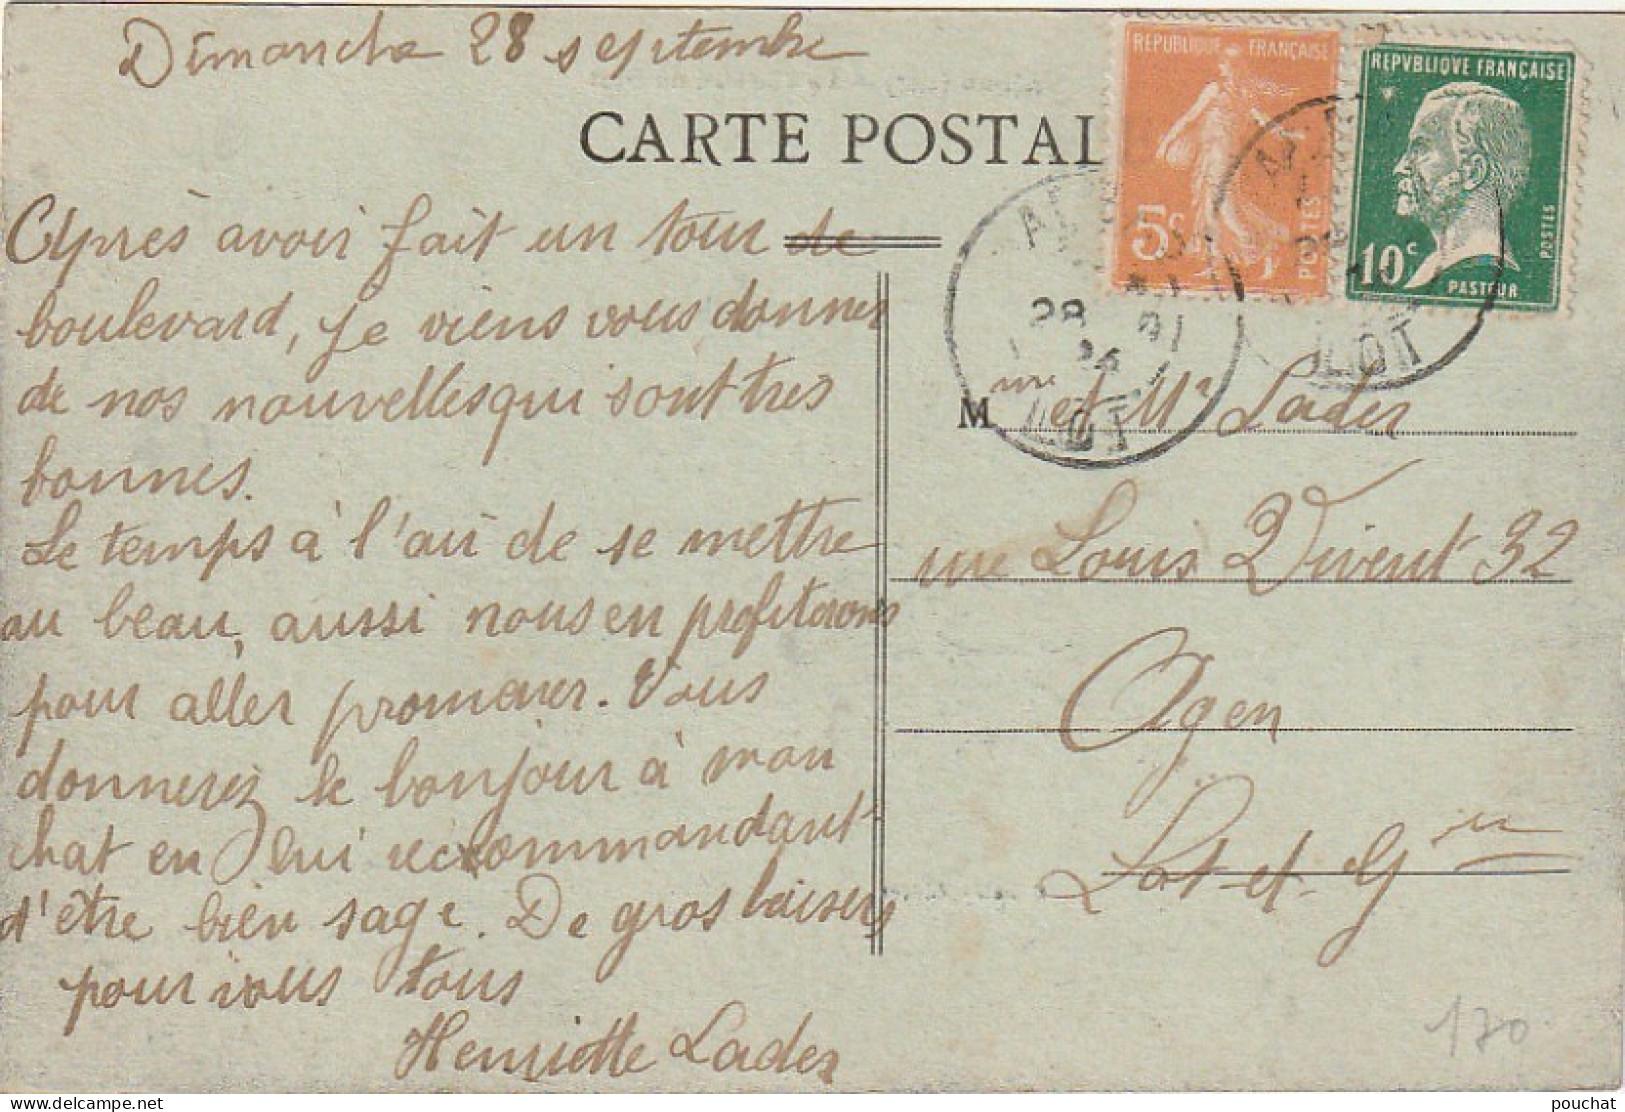 Dimanche 28 septembre
CARTE POSTAL
REPUBLIQUE FRANÇAISE
5c
POSTES
REPVBLIQVE FRANÇAISE
10c
POSTES
PASTEUR
28
LOT
LOT
Après avoir fait un tour de
boulevard, je viens vous donner
de nos nouvelles qui sont très
bonnes.
Le temps à l'air de se mettre
au beau, aussi nous en profiterons
pour aller promener. Vous
donnerez le bonjour à mon
chat en lui recommandant
d'être bien sage. De gros baisers
pour vous tous
Henriette Lader
M me et Mr Lader
rue Louis Vivent 32
Agen
Lot-et-Gne
170
pouchat